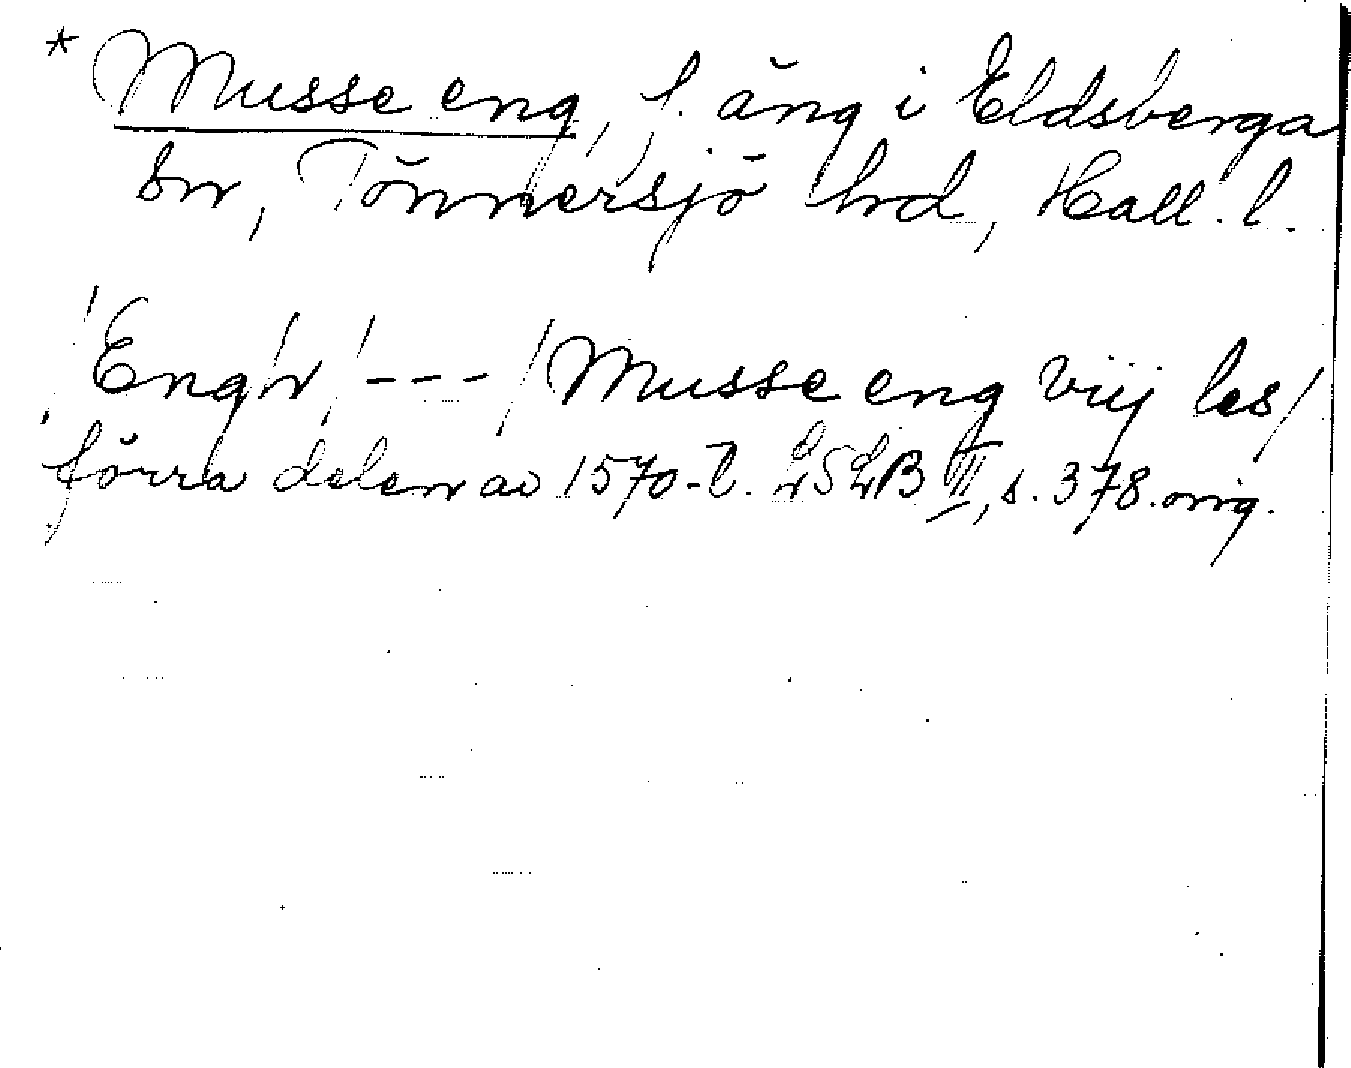 * Musse eng, f. äng i Eldsberga
sn, Tönnersjö hrd, Hall. l.
/Eng/r/ --- / Musse eng vij les/
förra delen av 1570-t. LSLB III, s. 378. orig.